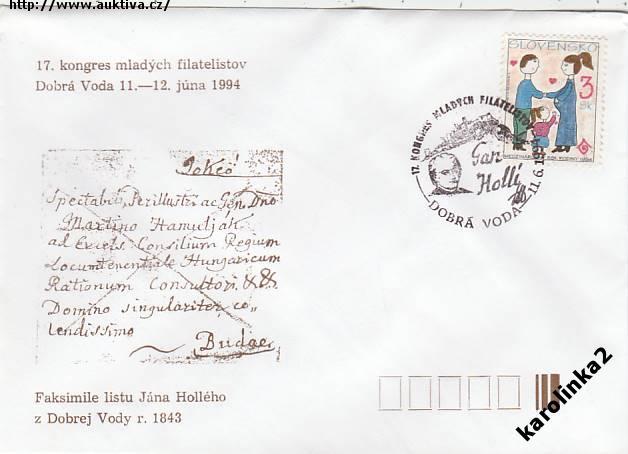 http://www.auktiva.cz/
17. kongres mladých filatelistov
Dobrá Voda 11.—12. júna 1994
SLOVENSKO
3
Sk
MEDZINÁRODNÝ ROK RODINY 1994
17. KONGRES MLADÝCH FILATELISTOV
11.6.1994
Gan Hollí
—DOBRÁ VODA—
Tokeő
Spectabili, Perillustri ac Gen. Dno
Martino Hamuljak
ad Excels. Consilium Regium
Locumtenentiale Hungaricum
Rationum Consultori, &&.
Domino singulariter, co„
lendissimo
Budae
Faksimile listu Jána Hollého
z Dobrej Vody r. 1843
karolinka2